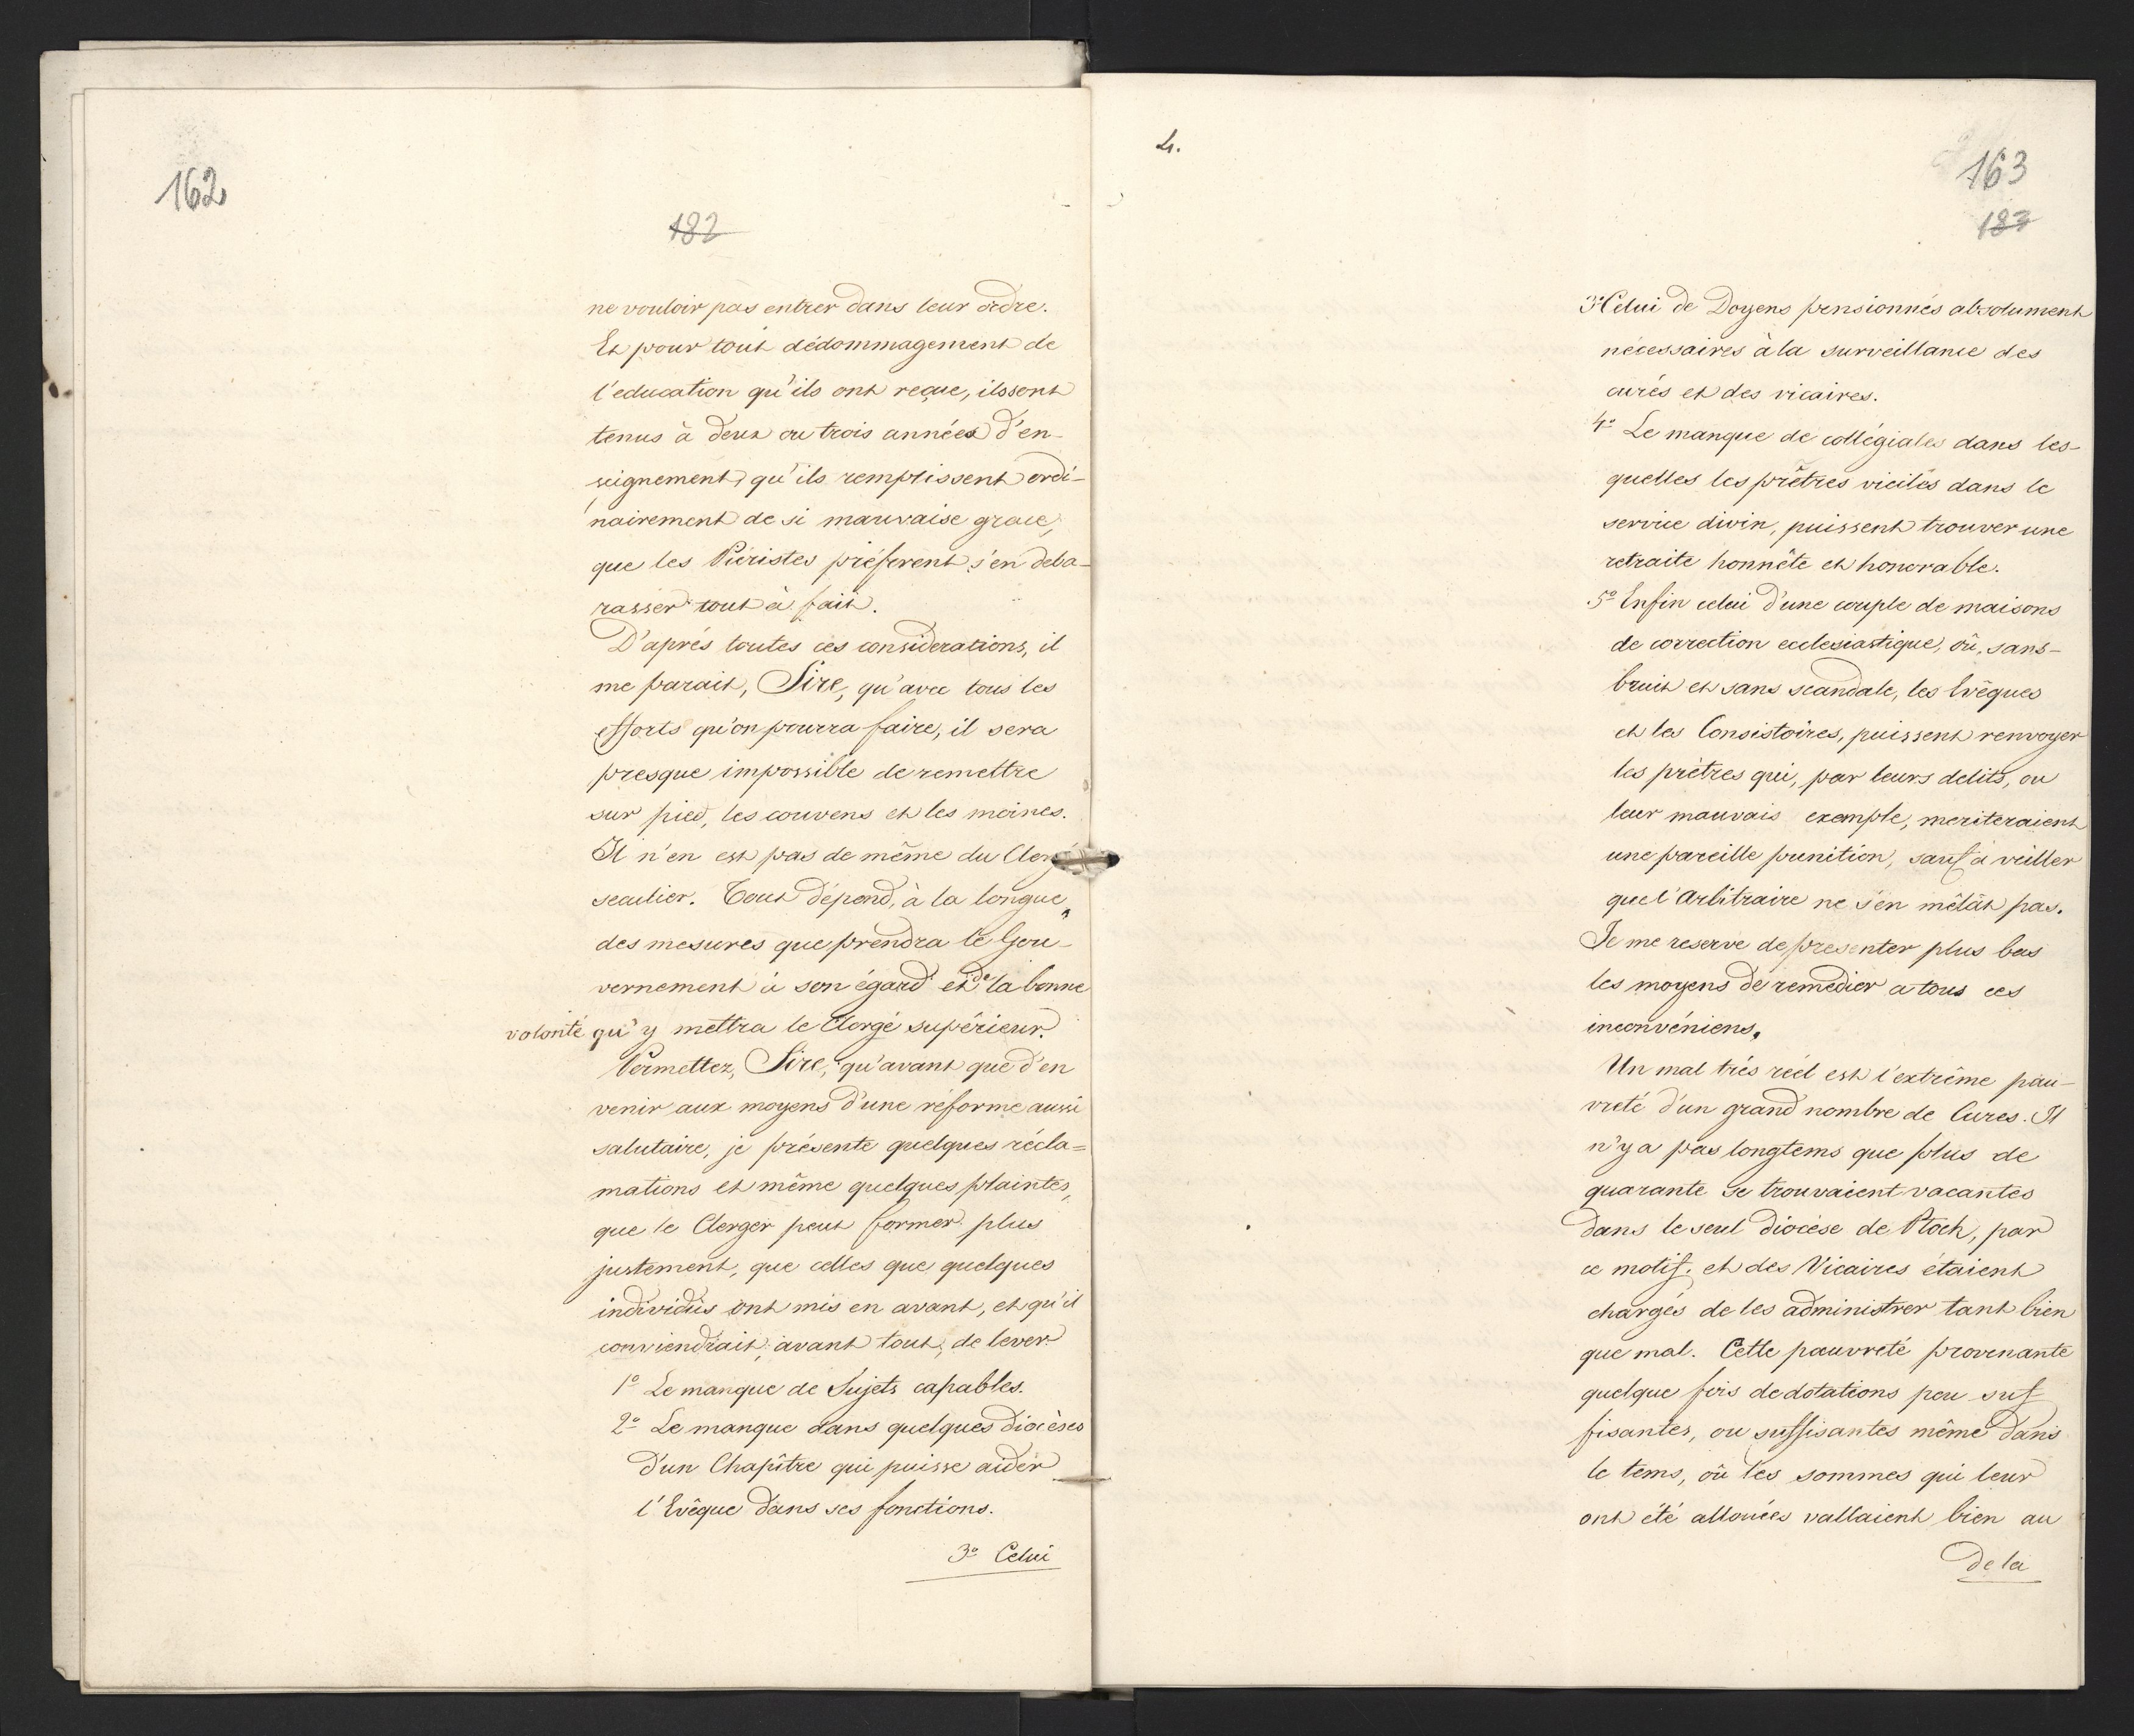 162
182
ne vouloir pas entrer dans leur ordre.
Et pour tout dédommagement de
l'education qu'ils ont reçue, ils sont
tenus à deux ou trois années d'en-
seignement, qu'ils remplissent ordi-
nairement de si mauvaise grace,
que les Piéristes préferent s'en deba-
rasser tout à fait.
D'aprés toutes ces considerations, il
me parait, Sire, qu'avec tous les
efforts qu'on pourra faire, il sera
presque impossible de remettre
sur pied, les couvens et les moines.
Il n'en est pas de même du Clergé
seculier. Tout dépend, à la longue,
des mesures que prendra le Gou-
vernement à son égard et de la bonne
volonté qu'y mettra le Clergé supérieur.
Permettez, Sire, qu'avant que d'en
venir aux moyens d'une réforme aussi
salutaire, je présente quelques récla=
mations et même quelques plaintes,
que le Clerger peut former plus
justement, que celles que quelques
individus ont mis en avant, et qu'il
conviendrait, avant tout, de lever.
1º Le manque de Sujets capables.
2º Le manque dans quelques diocèses
d'un Chapître qui puisse aider
l'Evêque dans ses fonctions.
3º Celui
4.
163
183
3º Celui de Doyens pensionnés absolument
nécessaires à la surveillance des
curés et des vicaires.
4º Le manque de collégiales dans les-
quelles les prêtres vieilis dans le
service divin, puissent trouver une
retraite honnête et honorable.
5º Enfin celui d'une couple de maisons
de correction ecclesiastique, où, sans-
bruit et sans scandale, les Evêques
et les Consistoires, puissent renvoyer
les prètres qui, par leurs delits, ou
leur mauvais exemple, meriteraient
une pareille punition, sauf à veiller
que l'Arbitraire ne s'en mêlât pas.
Je me reserve de presenter plus bas
les moyens de remedier a tous ces
inconvéniens.
Un mal trés réél est l'extrême pau-
vreté d'un grand nombre de Cures. Il
n'y a pas longtems que plus de
quarante se trouvaient vacantes
dans le seul diocèse de Płock, par
ce motif, et des Vicaires étaient
chargés de les administrer tant bien
que mal. Cette pauvreté provenante
quelque fois de dotations peu suf
fisantes, ou suffisantes même dans
le tems, où les sommes qui leur
ont été allouées vallaient bien au
de la